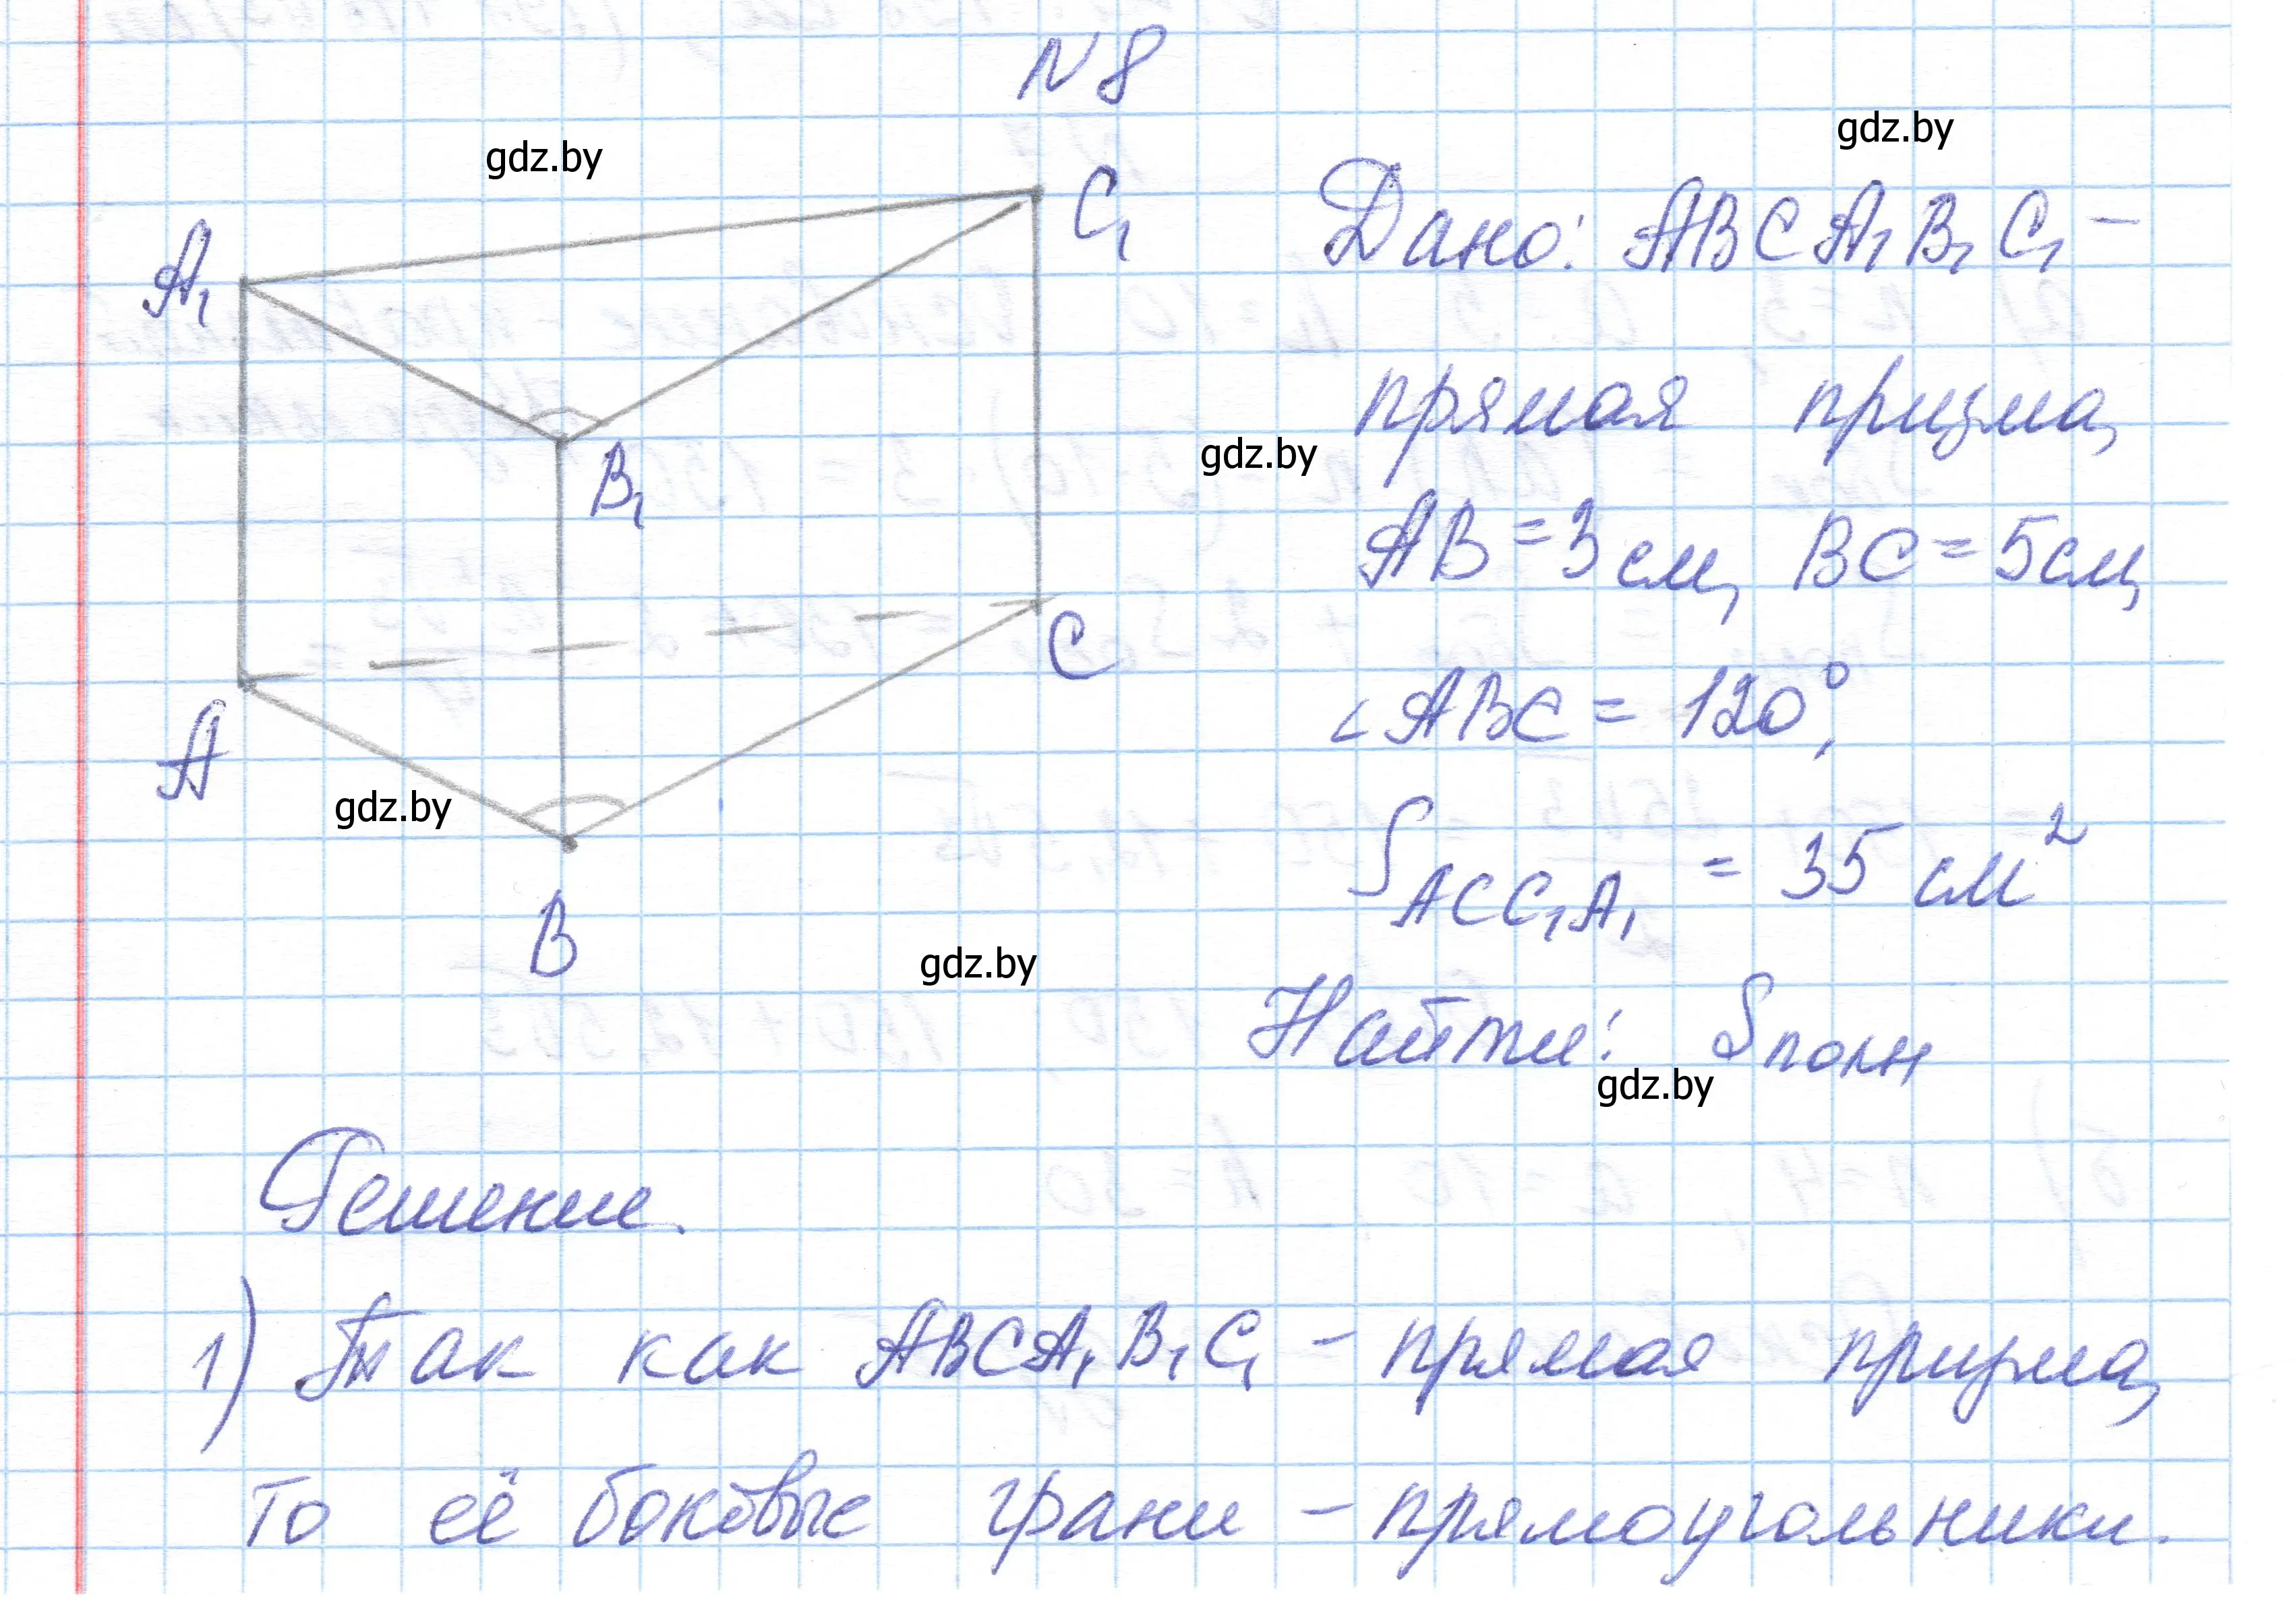 N 8
gdz.by
gdz.by
A₁
C₁
Дано: ABCA₁B₁C₁ –
прямая призма,
gdz.by
B₁
AB = 3 см, BC = 5 см,
C
∠ABC = 120°,
A
gdz.by
S ACC₁A₁ = 35 см²
B
gdz.by
Найти: Sполн
gdz.by
Решение.
1) Так как ABCA₁B₁C₁ – прямая призма,
то её боковые грани – прямоугольники.